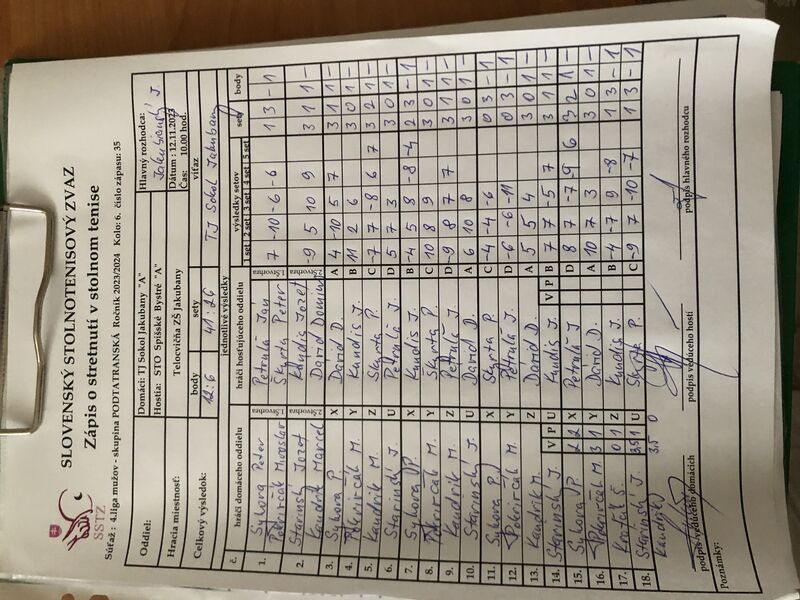 SSTZ
SLOVENSKÝ STOLNOTENISOVÝ ZVAZ
Zápis o stretnutí v stolnom tenise
Súťaž : 4.liga mužov - skupina PODTATRANSKÁ Ročník 2023/2024 Kolo: 6. číslo zápasu: 35
Oddiel: Domáci: TJ Sokol Jakubany "A" Hlavný rozhodca:
Hostia: STO Spišské Bystré "A" J.
Hracia miestnosť: Telocvičňa ZŠ Jakubany Dátum : 12.11.2023
Čas: 10.00 hod.
Celkový výsledok: body sety víťaz
12:6 41:26 TJ Sokol Jakubany
jednotlivé výsledky
č. hráči domáceho oddielu hráči hosťujúceho oddielu výsledky setov sety body
1 set 2 set 3 set 4 set 5 set
1. Sykora Peter 1.Štvorhra Petruľa Ján 1.Štvorhra 7 -10 -6 -6 1 3 - 1
Pokvirčák Miroslav Škurta Peter
2. Starinský Jozef 2.Štvorhra Kundis Jozef 2.Štvorhra -9 5 10 9 3 1 1 -
Kaudrik Marcel Dávid Dominik
3. Sykora P. X Dávid D. A 4 -10 5 7 3 1 1 -
4. Pokvirčák M. Y Kundis J. B 11 2 6 3 0 1 -
5. Kaudrik M. Z Skurta P. C -7 7 -8 6 7 3 2 1 -
6. Starinský J. U Petruľa J. D 5 7 3 3 0 1 -
7. Sykora P. X Kundis J. B -4 5 8 -8 -4 2 3 - 1
8. Pokvirčák M. Y Skurta P. C 10 8 9 3 0 1 -
9. Kaudrik M. Z Petruľa J. D -9 8 7 7 3 1 1 -
10. Starinský J. U Dávid D. A 6 10 8 3 0 1 -
11. Sykora P. X Skurta P. C -4 -4 -6 0 3 - 1
12. Pokvirčák M. Y Petruľa J. D -6 -6 -11 0 3 - 1
13. Kaudrik M. Z Dávid D. A 5 5 4 3 0 1 -
14. Starinský J. V P U Kundis J. V P B 7 7 -5 7 3 1 1 -
15. Sykora P. 2 2 X Petruľa J. D 8 7 -7 -9 6 3 2 1 -
16. Pokvirčák M. 3 1 Y Dávid D. A 10 7 3 3 0 1 -
17. Š. 0 1 Z Kundis J. B -4 -7 9 -8 1 3 - 1
18. Starinský J. 3,5 1 U Skurta P. C -9 7 -10 -7 1 3 - 1
Kaudrik 3,5 0
podpis vedúceho domácich podpis vedúceho hostí podpis hlavného rozhodcu
Poznámky: